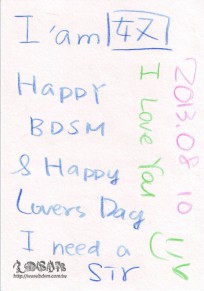 I'am 奴
Happy
BDSM
& Happy
Lovers Day
I need a
STr
I Love You
2013.08 10